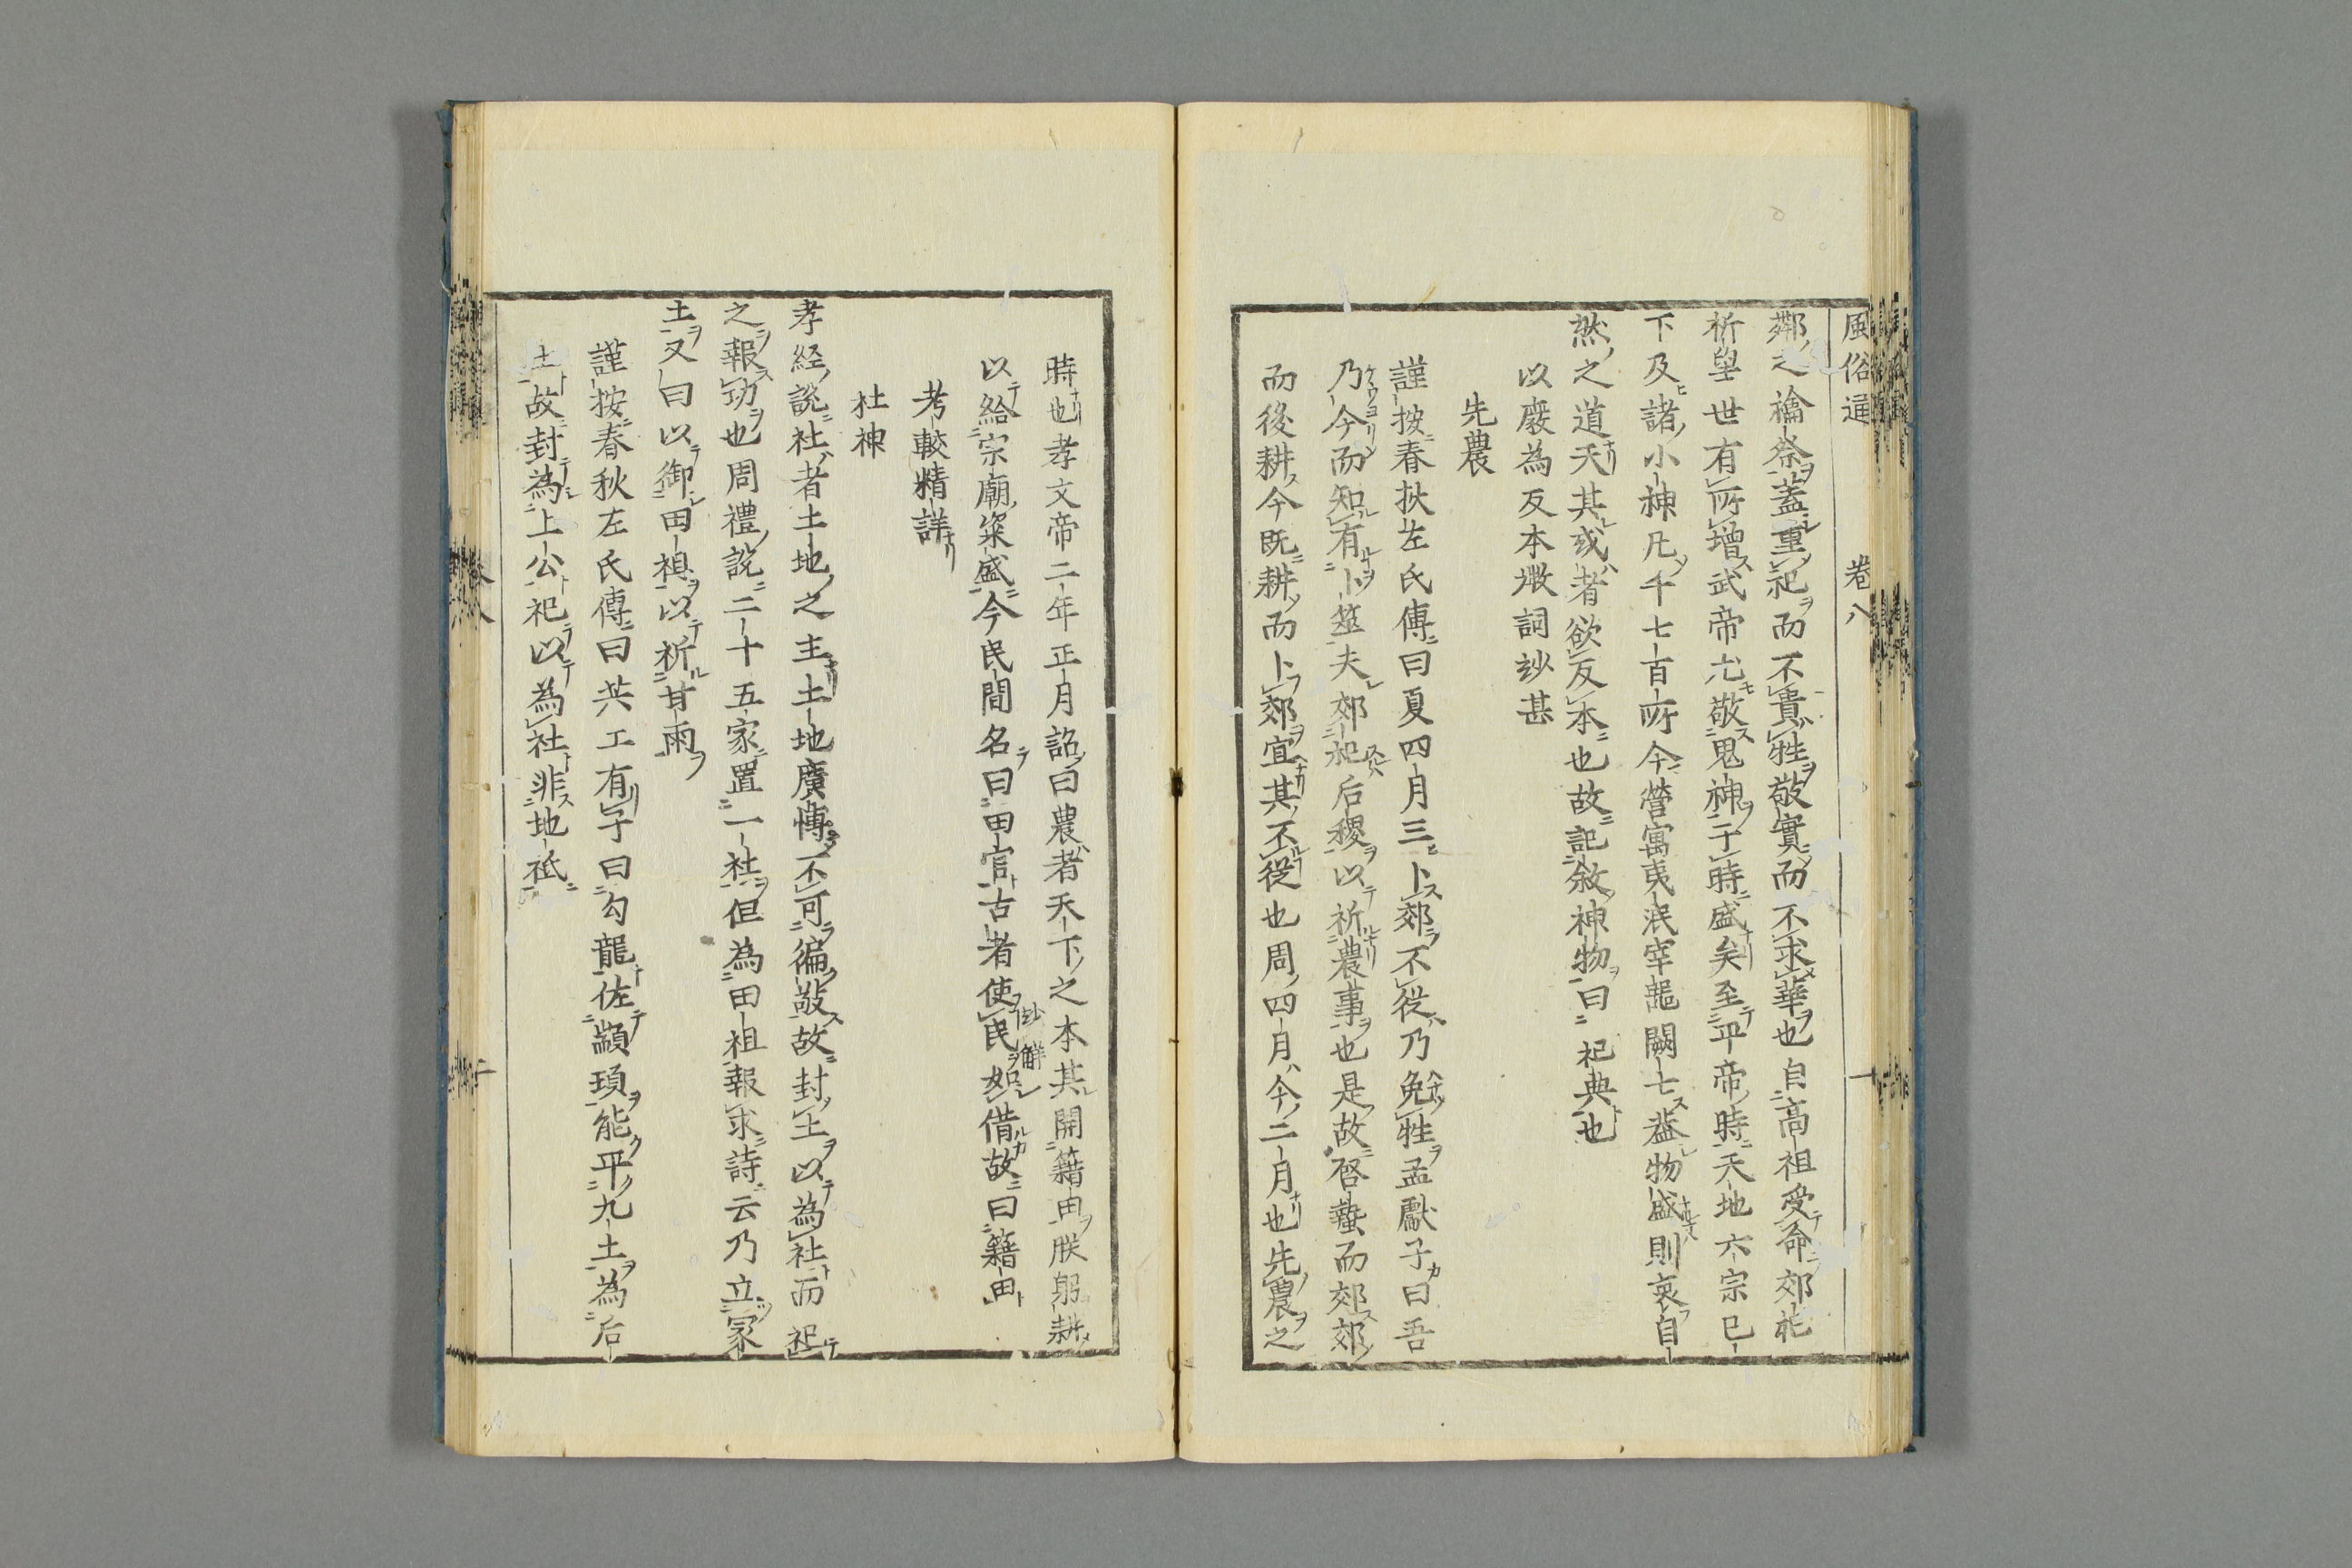 風俗通 卷八 一
鄰之禴祭蓋重祀而不貴牲敬實而不求華也自高祖受命郊祀
祈望世有所增武帝尤敬鬼神于時盛矣至平帝時天地六宗已
下及諸小神凡千七百所今營寓夷泯宰器闕亡蓋物盛則衰自
然之道天其或者欲反本也故記敘神物曰祀典也
以廢為反本墩詞玅甚
先農
謹按春秋左氏傳曰夏四月三卜郊不從乃免牲孟獻子曰吾
乃今而知有卜筮夫郊祀后稷以祈農事也是故啓蟄而郊郊
而後耕今既耕而卜郊宜其不從也周四月今二月也先農之
時也孝文帝二年正月詔曰農者天下之本其開籍田朕躬耕
以給宗廟粢盛今民間名曰田官古者使民如借故曰籍田
玅解
考較精詳
社神
孝經說社者土地之主土地廣博不可徧敬故封土以為社而祀
之報功也周禮說二十五家置一社但為田祖報求詩云乃立冢
土又曰以御田祖以祈甘雨
謹按春秋左氏傳曰共工有子曰勾龍佐顓頊能平九土為后
土故封為上公祀以為社非地祇